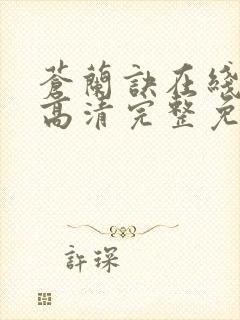 蒼蘭訣在綫
高清完整免
許琛